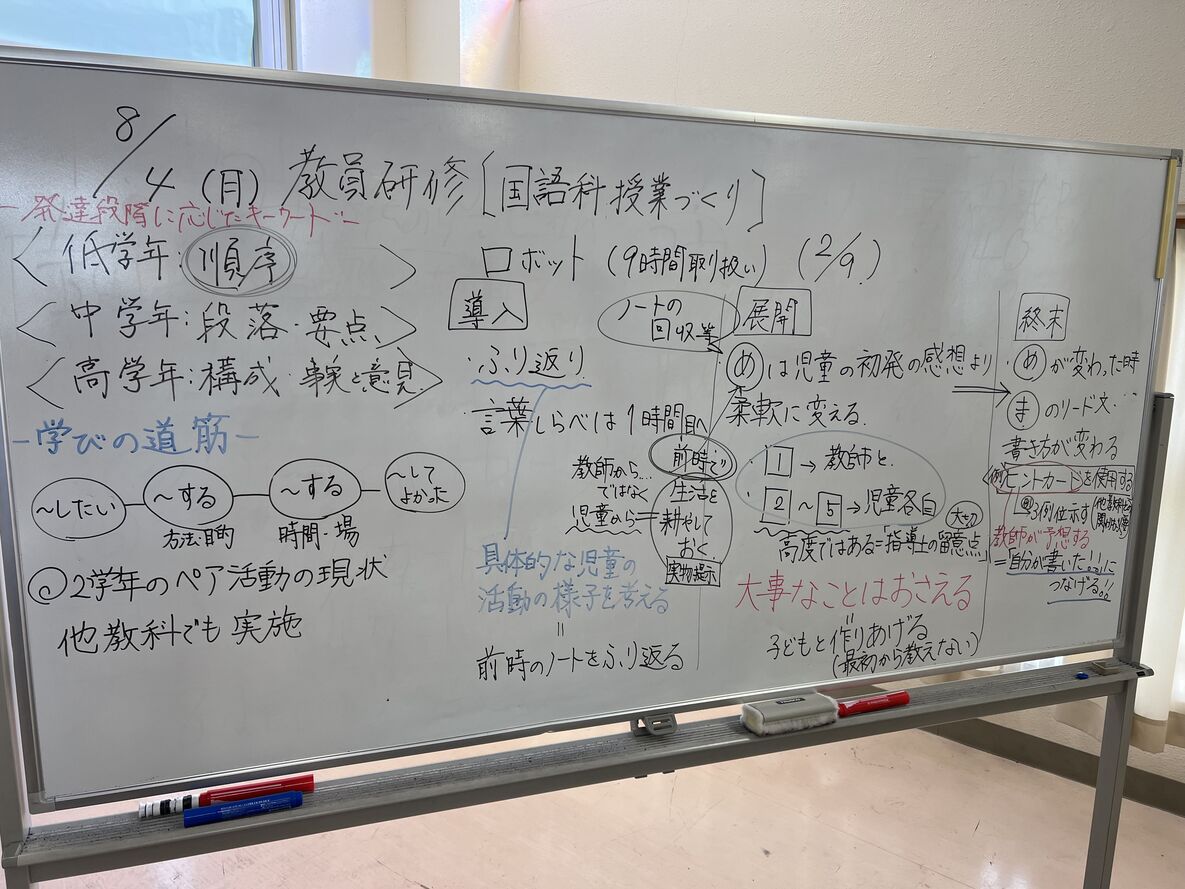 8/4(月) 教員研修[国語科授業づくり]
-発達段階に応じたキーワード-
<低学年:順序>
<中学年:段落・要点>
<高学年:構成・事実と意見>
-学びの道筋-
~したい ~する ~する ~してよかった
方法・目的 時間・場
◎2学年のペア活動の現状
他教科でも実施
ロボット(9時間取り扱い) (2/9)
導入
・ふり返り
・言葉しらべは1時間目へ
教師から…
ではなく
児童から=
前時で
生活を
耕やして
おく
実物提示
具体的な児童の
活動の様子を考える
=
前時のノートをふり返る
ノートの
回収等
展開
・めは児童の初発の感想より
柔軟に変える.
1→教師と.
2~5→児童各自
大切
高度ではある=「指導上の留意点」
大事なことはおさえる
子どもと作りあげる
(最初から教えない)
終末
・めが変わった時
・まのリード文…
書き方が変わる
例 ヒントカードを使用する
3例位示す
教師が予想する
=「自分が書いた!!」に
つなげる!!